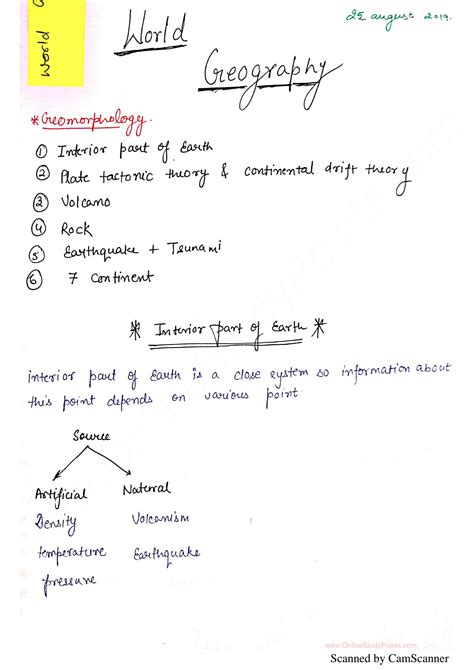 World
25 august 2019.
World
Geography
* Geomorphology.
① Interior part of Earth
② Plate tactonic theory & continental drift theory
③ Volcano
④ Rock
⑤ Earthquake + Tsunami
⑥ 7 Continent
* Interior part of Earth *
interior part of Earth is a close system so information about
this point depends on various point.
Source
Artificial Natural
Density Volcanism
temperature Earthquake
pressure
www.OnlineStudyPoints.com
Scanned by CamScanner